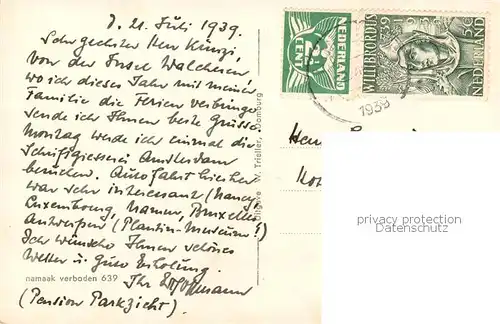 D. 21. Juli 1939.
Sehr geehrter Herr Künzi,
von der Insel Walcheren,
wo ich dieses Jahr mit meiner
Familie die Ferien verbringe
sende ich Ihnen beste Grüsse
Montag werde ich einmal die
Schriftgiesserei Amsterdam
besuchen. Autofahrt hieher
war sehr interessant (Nancy,
Luxembourg, Namur, Bruxelles
Antwerpen (Plantin-Museum!)
Ich wünsche Ihnen schönes
Wetter u. gute Erholung.
Ihr
(Pension Parkzicht)
namaak verboden 639
Uitgave W. Trieller, Domburg
2½
CENT
NEDERLAND
WILLIBRORDUS
739
1939
5c
NEDERLAND
1939
privacy protection
watermark